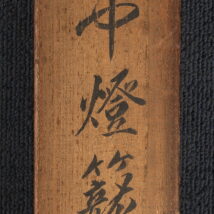 中燈籠